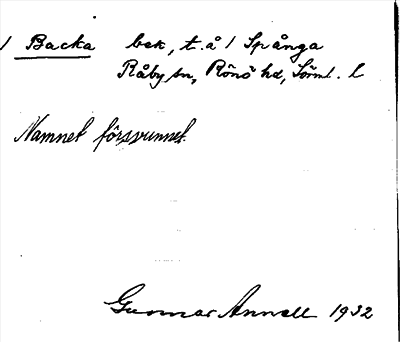 / Backa bek, t. å / Spånga
Råby sn, Rönö hd, Söml. l
Namnet försvunnet.
Gunnar Annell 1932